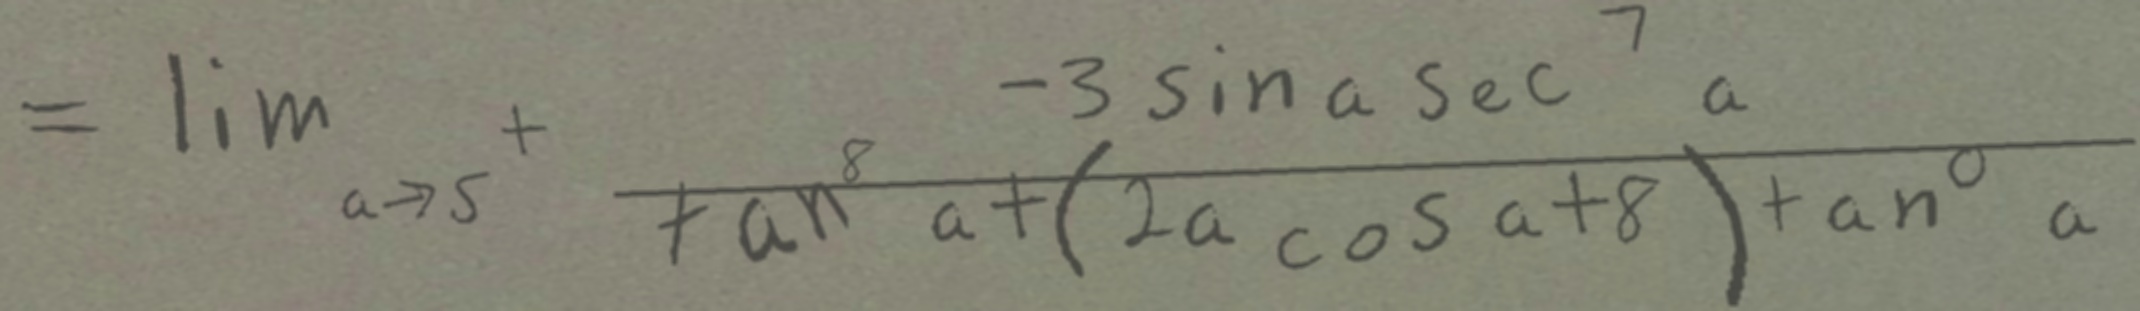 = \lim_{a \to 5^+} \frac{-3 \sin a \sec^7 a}{\tan^8 a + (2a \cos a + 8) \tan^0 a}